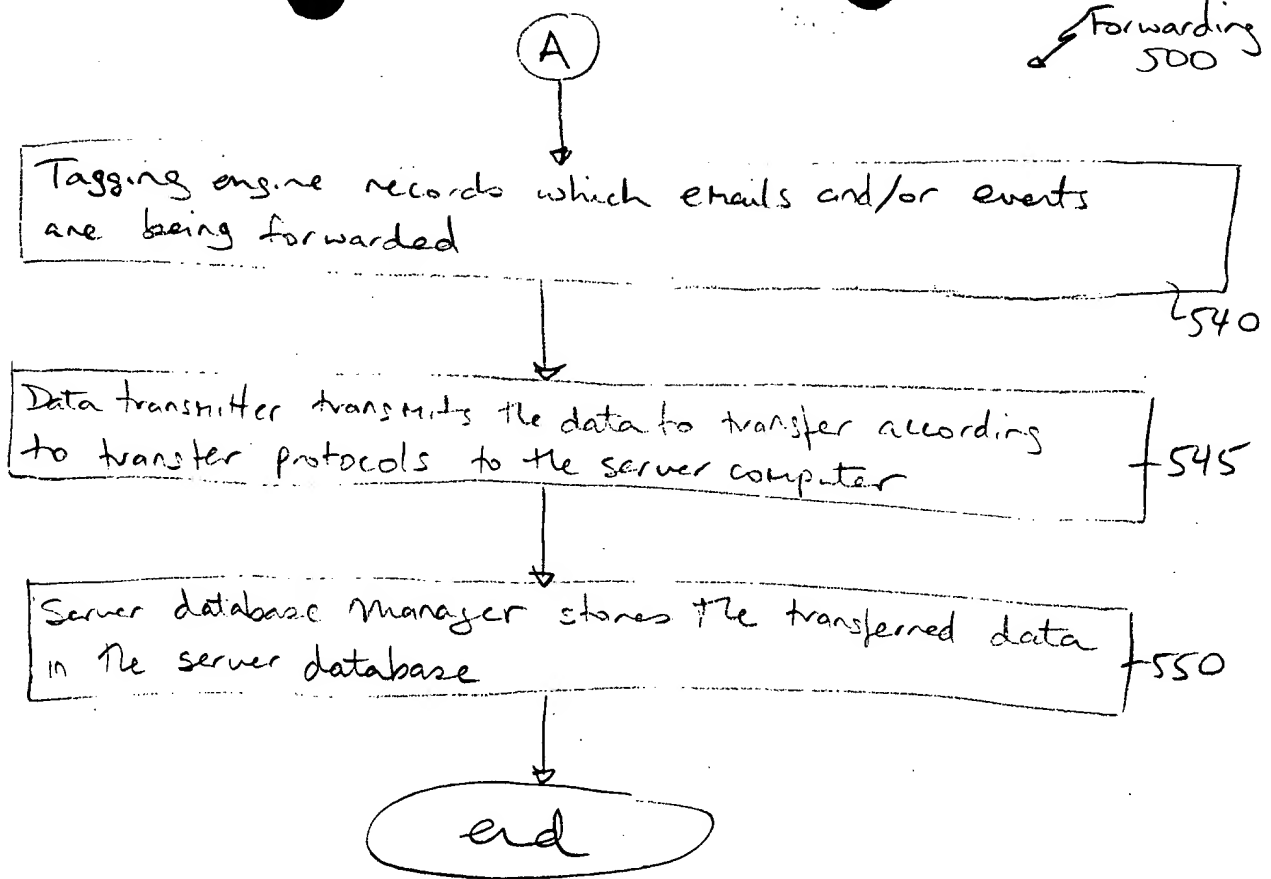 A
Forwarding
500
Tagging engine records which emails and/or events
are being forwarded
540
Data transmitter transmits the data to transfer according
to transfer protocols to the server computer
545
Server database manager stores the transferred data
in the server database
550
end